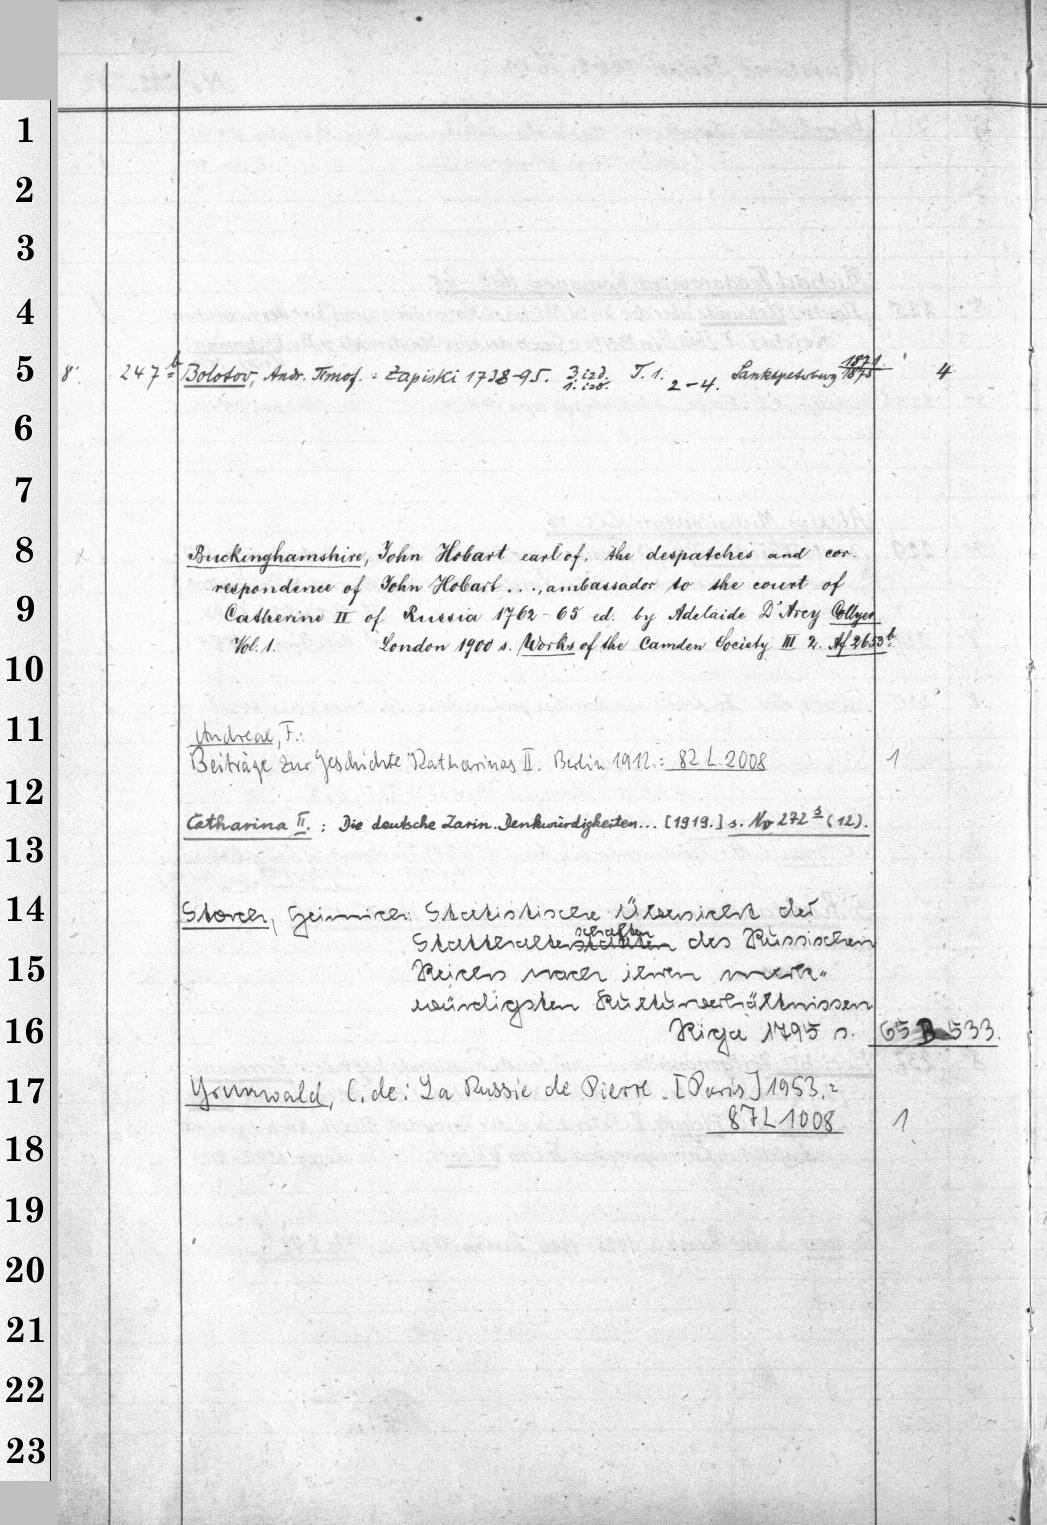 1
2
3
4
5
8° 247 b Bolotov, Andr. Timof.: Zapiski 1738-95. 3. izd. 1. izd. T. 1. 2-4. Sanktpetersburg 1871. 1875 4
6
7
8
Buckinghamshire, John Hobart earl of, the despatches and cor-
respondence of John Hobart..., ambassador to the court of
9
Catherine II of Russia 1762-65 ed. by Adelaide D'Arcy Collyer
Vol. 1. London 1900 s. Works of the Camden Society III 2. Af 2653 b.
10
11
Andreae, F.:
Beiträge zur Geschichte Katharinas II. Berlin 1912.= 82 L 2008 1
12
Catharina II.: Die deutsche Zarin. Denkwürdigkeiten... [1919.] s. No 272 s (12).
13
14
Storch, Heinrich: Statistische Übersicht der
Statthalterschaften des Russischen
15
Reichs nach ihren merk-
würdigsten Kulturverhältnissen
16
Riga 1795 s. 65 B 533.
17
Grunwald, C. de: La Russie de Pierre. [Paris] 1953.=
87 L 1008 1
18
19
20
21
22
23